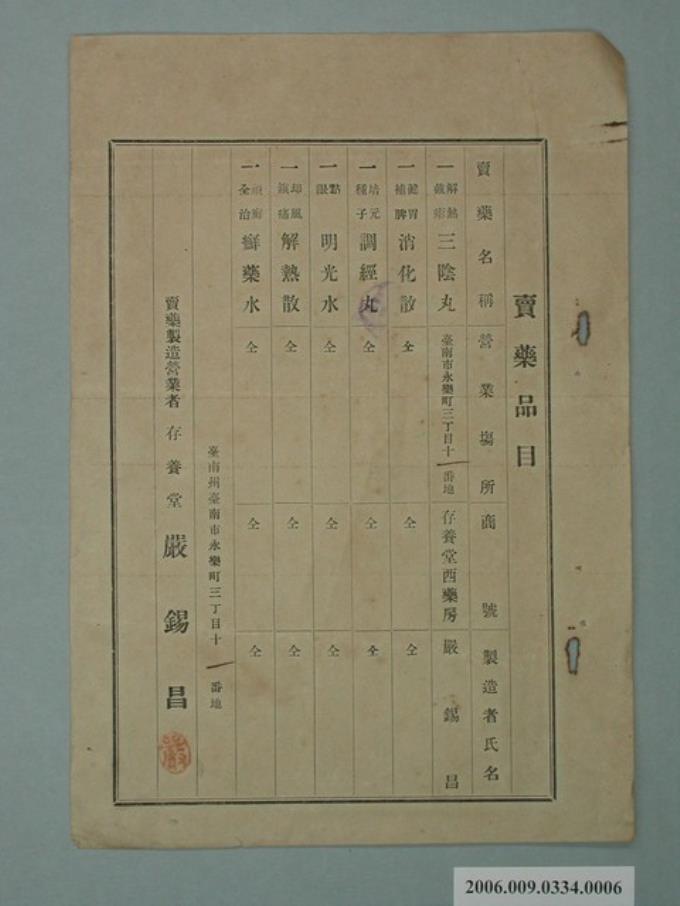 賣藥品目
賣藥名稱 營業場所 商號 製造者氏名
一 解熱鎮痛 三陰丸 臺南市永樂町三丁目十一番地 存養堂西藥房 嚴錫昌
一 健胃補脾 消化散 仝 仝 仝
一 培元種子 調經丸 仝 仝 仝
一 點眼 明光水 仝 仝 仝
一 却風鎮痛 解熱散 仝 仝 仝
一 全治 癬藥水 仝 仝 仝
臺南州臺南市永樂町三丁目十一番地
賣藥製造營業者 存養堂 嚴錫昌
2006.009.0334.0006